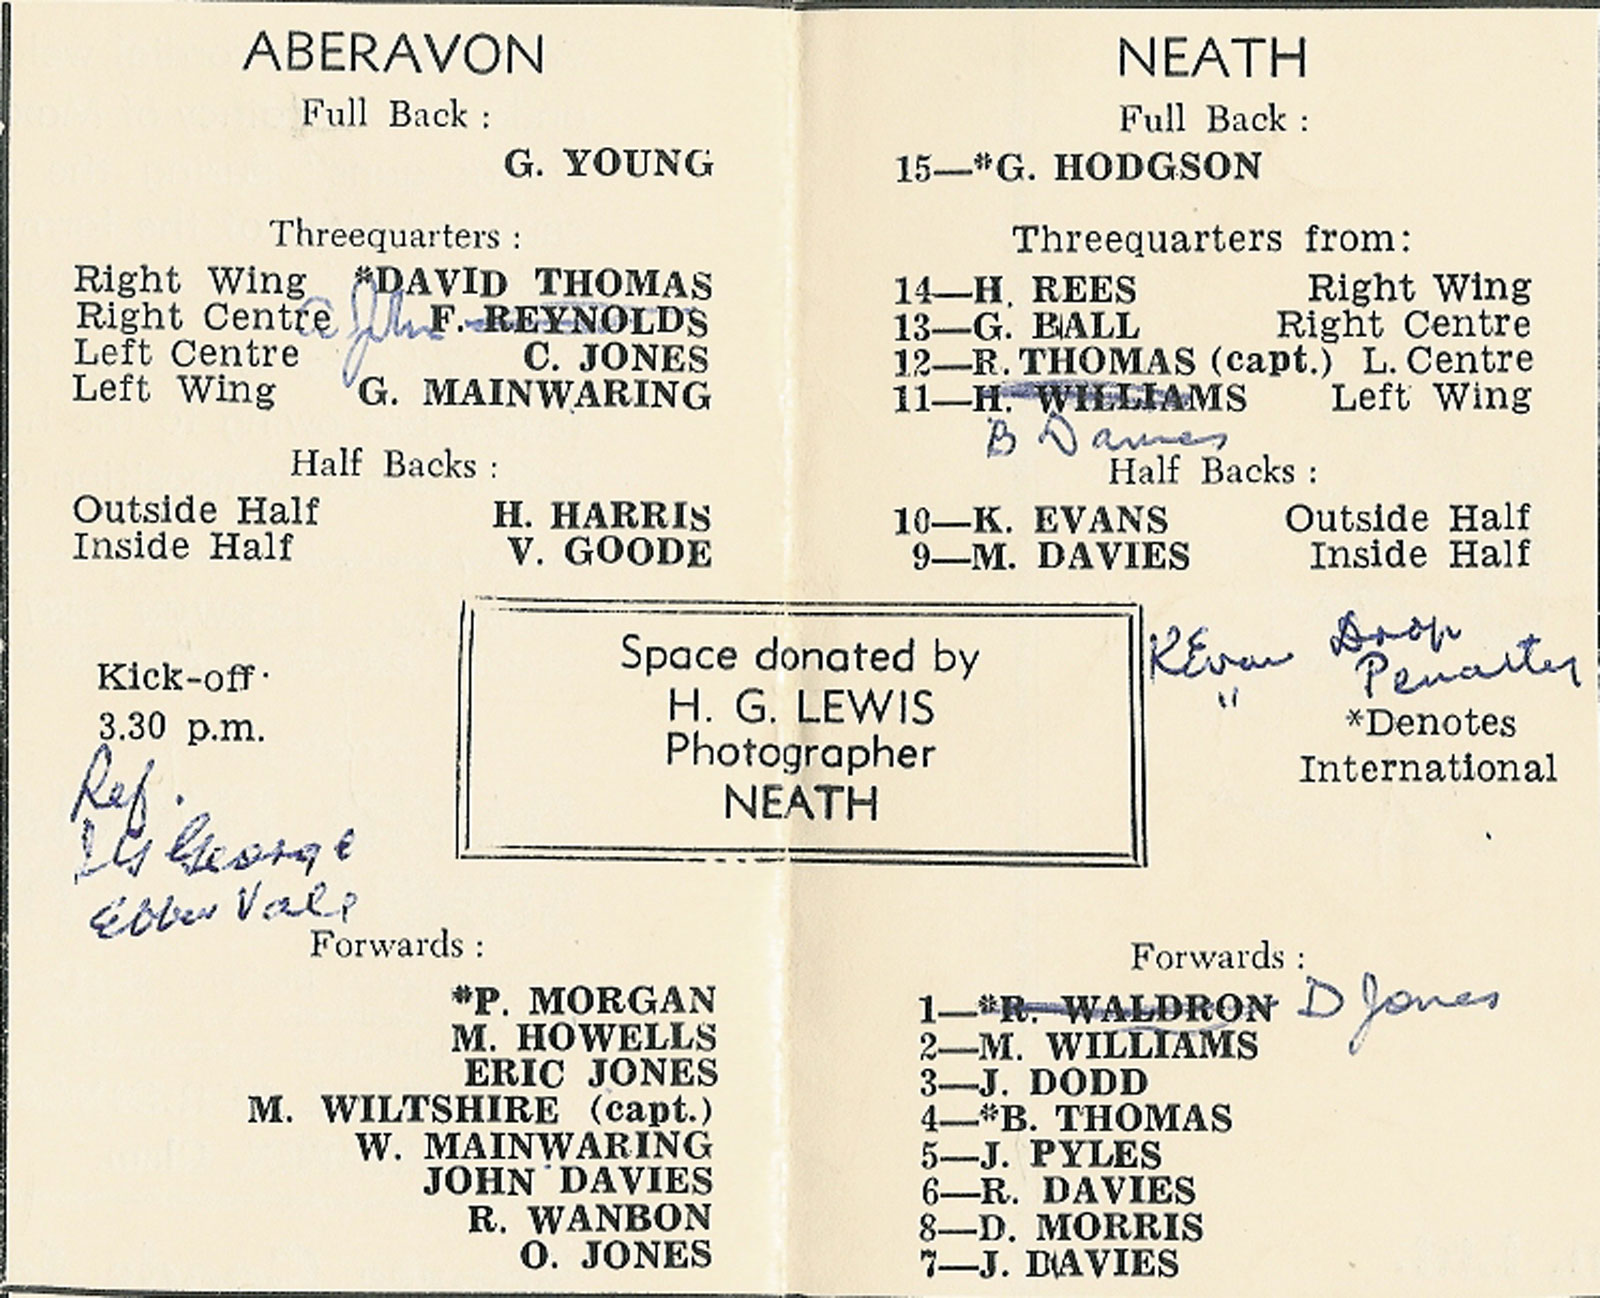 ABERAVON
Full Back :
G. YOUNG
Threequarters :
Right Wing *DAVID THOMAS
Right Centre John F. REYNOLDS
Left Centre C. JONES
Left Wing G. MAINWARING
Half Backs :
Outside Half H. HARRIS
Inside Half V. GOODE
Kick-off
3.30 p.m.
Ref.
George
Ebbw Vale
Forwards :
*P. MORGAN
M. HOWELLS
ERIC JONES
M. WILTSHIRE (capt.)
W. MAINWARING
JOHN DAVIES
R. WANBON
O. JONES
Space donated by
H. G. LEWIS
Photographer
NEATH
NEATH
Full Back :
15—*G. HODGSON
Threequarters from:
14—H. REES Right Wing
13—G. BALL Right Centre
12—R. THOMAS (capt.) L. Centre
11—H. WILLIAMS Left Wing
B Davies
Half Backs :
10—K. EVANS Outside Half
9—M. DAVIES Inside Half
K Evans Drop
" Penalty
*Denotes
International
Forwards :
1—*R. WALDRON D Jones
2—M. WILLIAMS
3—J. DODD
4—*B. THOMAS
5—J. PYLES
6—R. DAVIES
8—D. MORRIS
7—J. DAVIES